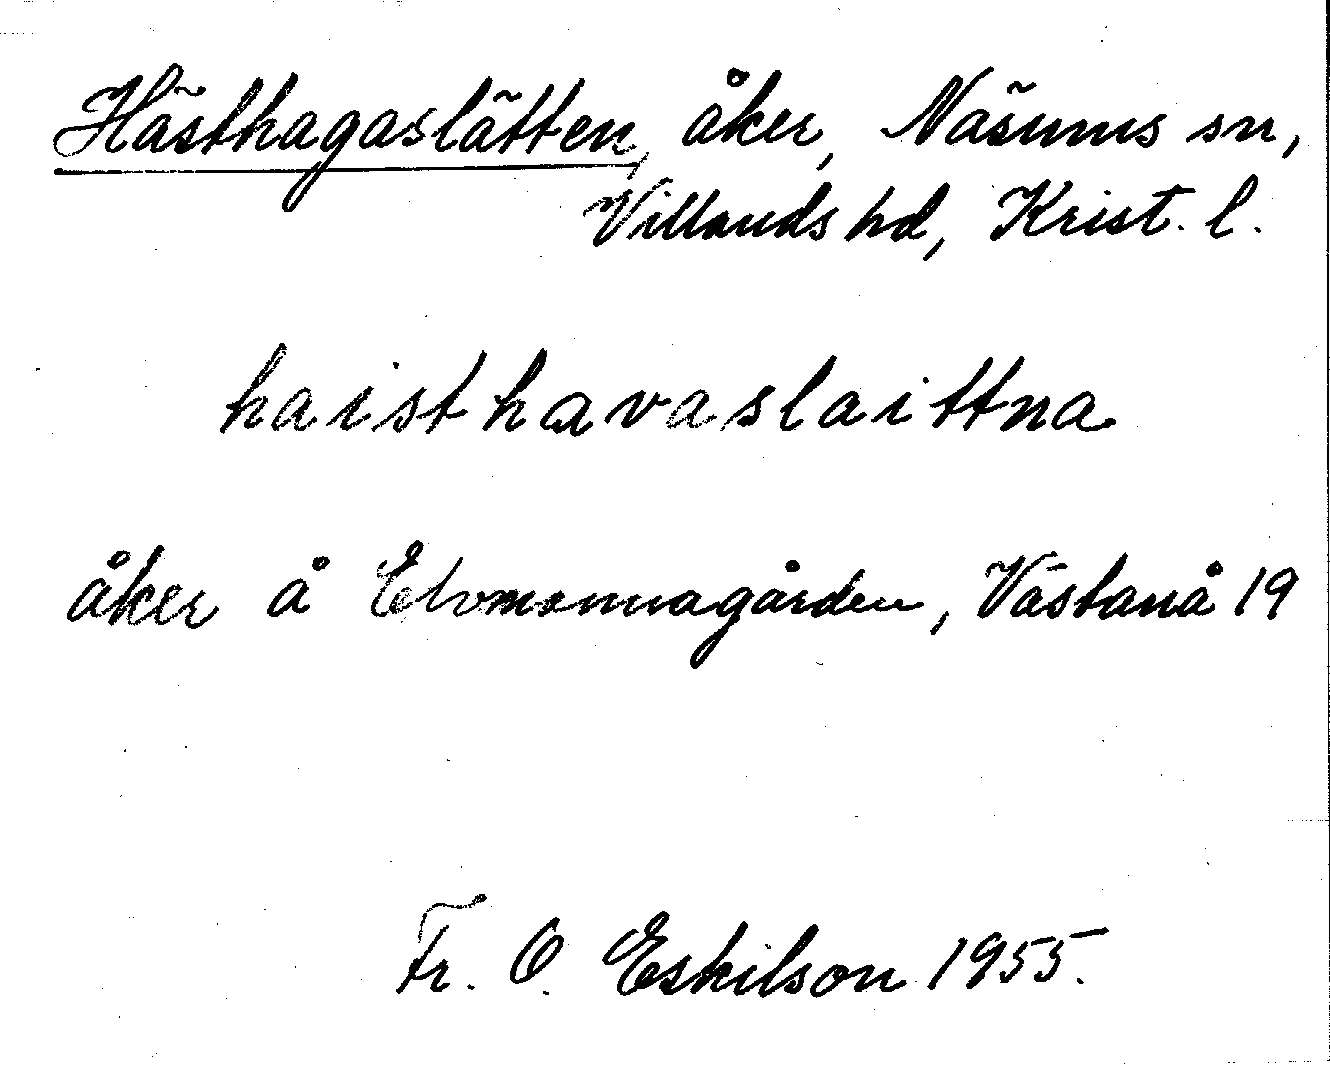 Hästhagaslätten, åker, Näsums sn,
Villands hd, Krist. l.
haisthavaslaittna
åker å Elvmannagården, Västanå 19
Fr. O. Eskilson 1955.